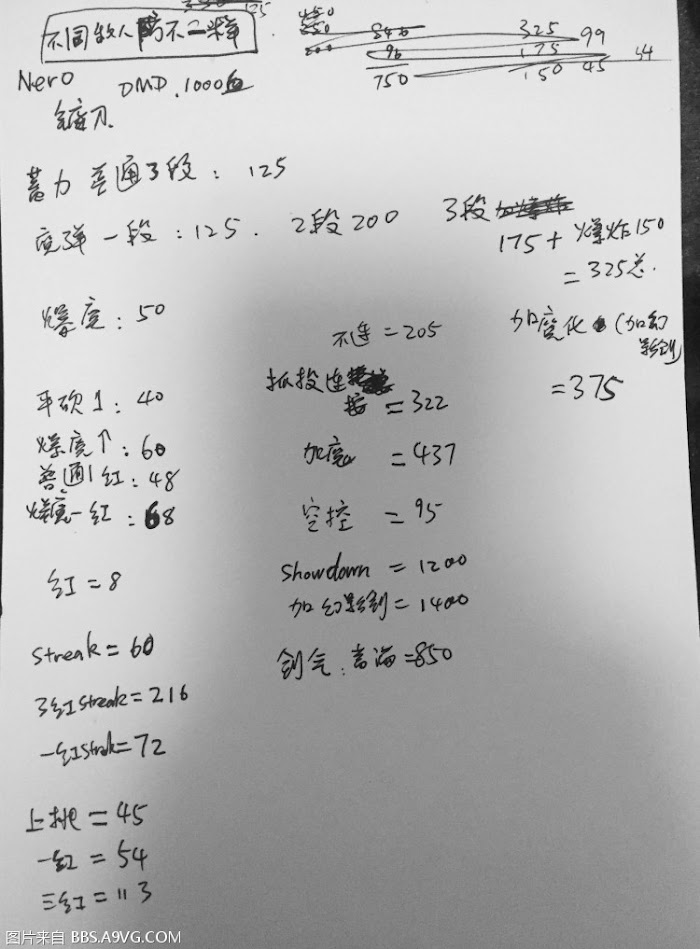 不同敌人防不一样
325 99
175 45
750 150
Nero DMD.1000血
镰刀
蓄力 普通3段: 125
魔弹一段:125. 2段200 3段
175+爆炸150
=325总.
爆魔:50
不连=205
加魔化(加幻影剑)
=375
抓投连接=322
平砍1:40
加魔=437
爆魔↑:60
普通1红:48
空控=95
爆魔一红:68
showdown=1200
加幻影剑=1400
红=8
streak=60
剑气:=850
3红streak=216
一红streak=72
上挑=45
一红=54
三红=113
图片来自 BBS.A9VG.COM